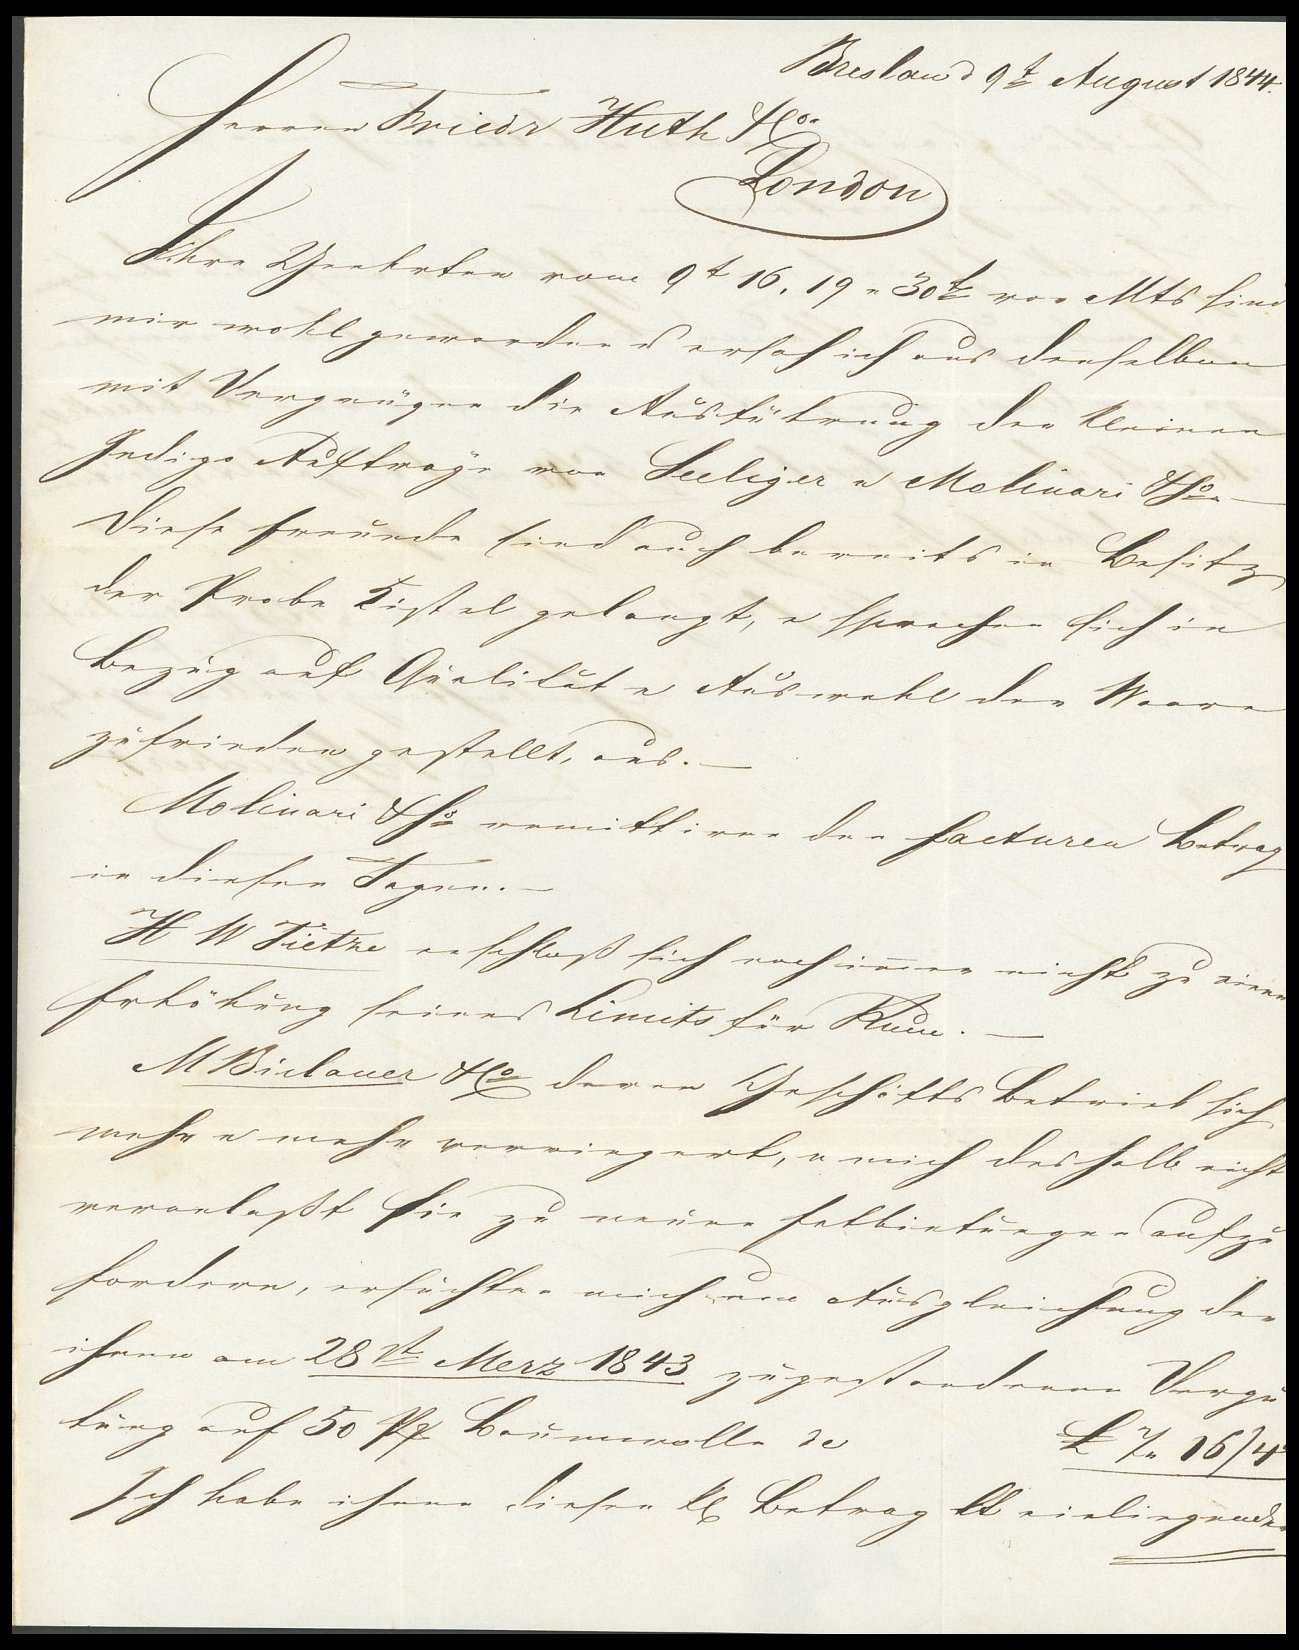 Breslau d 9t August 1844.
Herren Friedr Huth & Co.
London
Ihre Geehrten vom 9t 16, 19 u 30t vor Mts sind
mir wohl geworden u ersah ich aus denselben
mit Vergnügen die Ausführung der kleinen
Indigo Aufträge von Seeliger u Molinari & Co. —
Diese Freunde sind auch bereits in Besitz
der Probe Kistel gelangt, u sprechen sich in
Bezug auf Qualität u Auswahl der Waare
zufrieden gestellt, aus. —
Molinari & Co remittiren den Facturen Betrag
in diesen Tagen. —
H W Tietze entschloß sich noch immer nicht zu einer
Erhöhung seines Limits für Rum. —
M Bielauer & Co deren Geschäfts Betrieb sich
mehr u mehr verringert, u mich deshalb nicht
veranlaßt Sie zu neuen aufzu
fordern, ersuchten mich um Ausgleichung der
ihnen am 28t Merz 1843 zugestandenen Vergü
tung auf 50 Baumwolle de £ 7. 16/4
Ich habe ihnen diesen kl Betrag lt einliegender